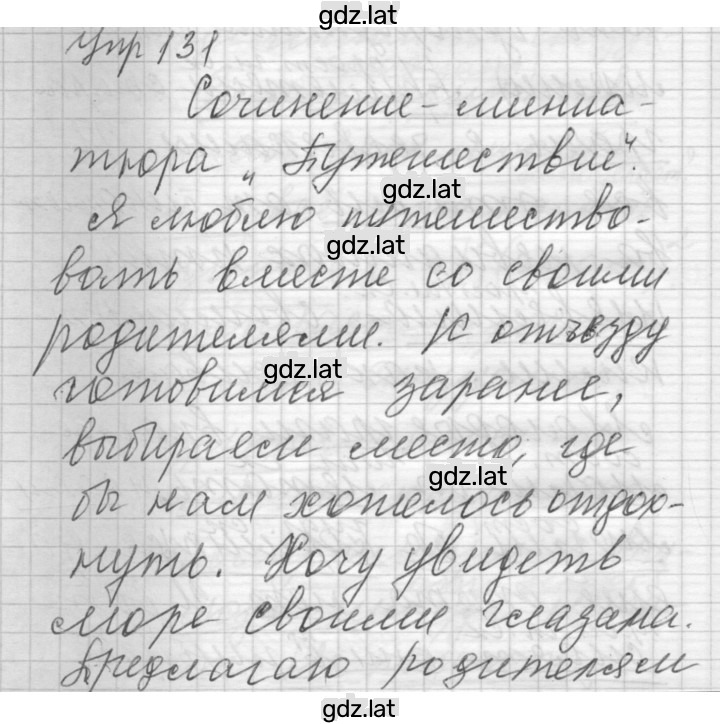 gdz.lat
Упр 131
Сочинение - миниа-
тюра „Путешествие".
gdz.lat
Я люблю путешество-
gdz.lat
вать вместе со своими
родителями. К отъезду
gdz.lat
готовимся заранее,
выбираем место, где
gdz.lat
бы нам хотелось отдох-
нуть. Хочу увидеть
море своими глазами.
Предлагаю родителям
gdz.lat